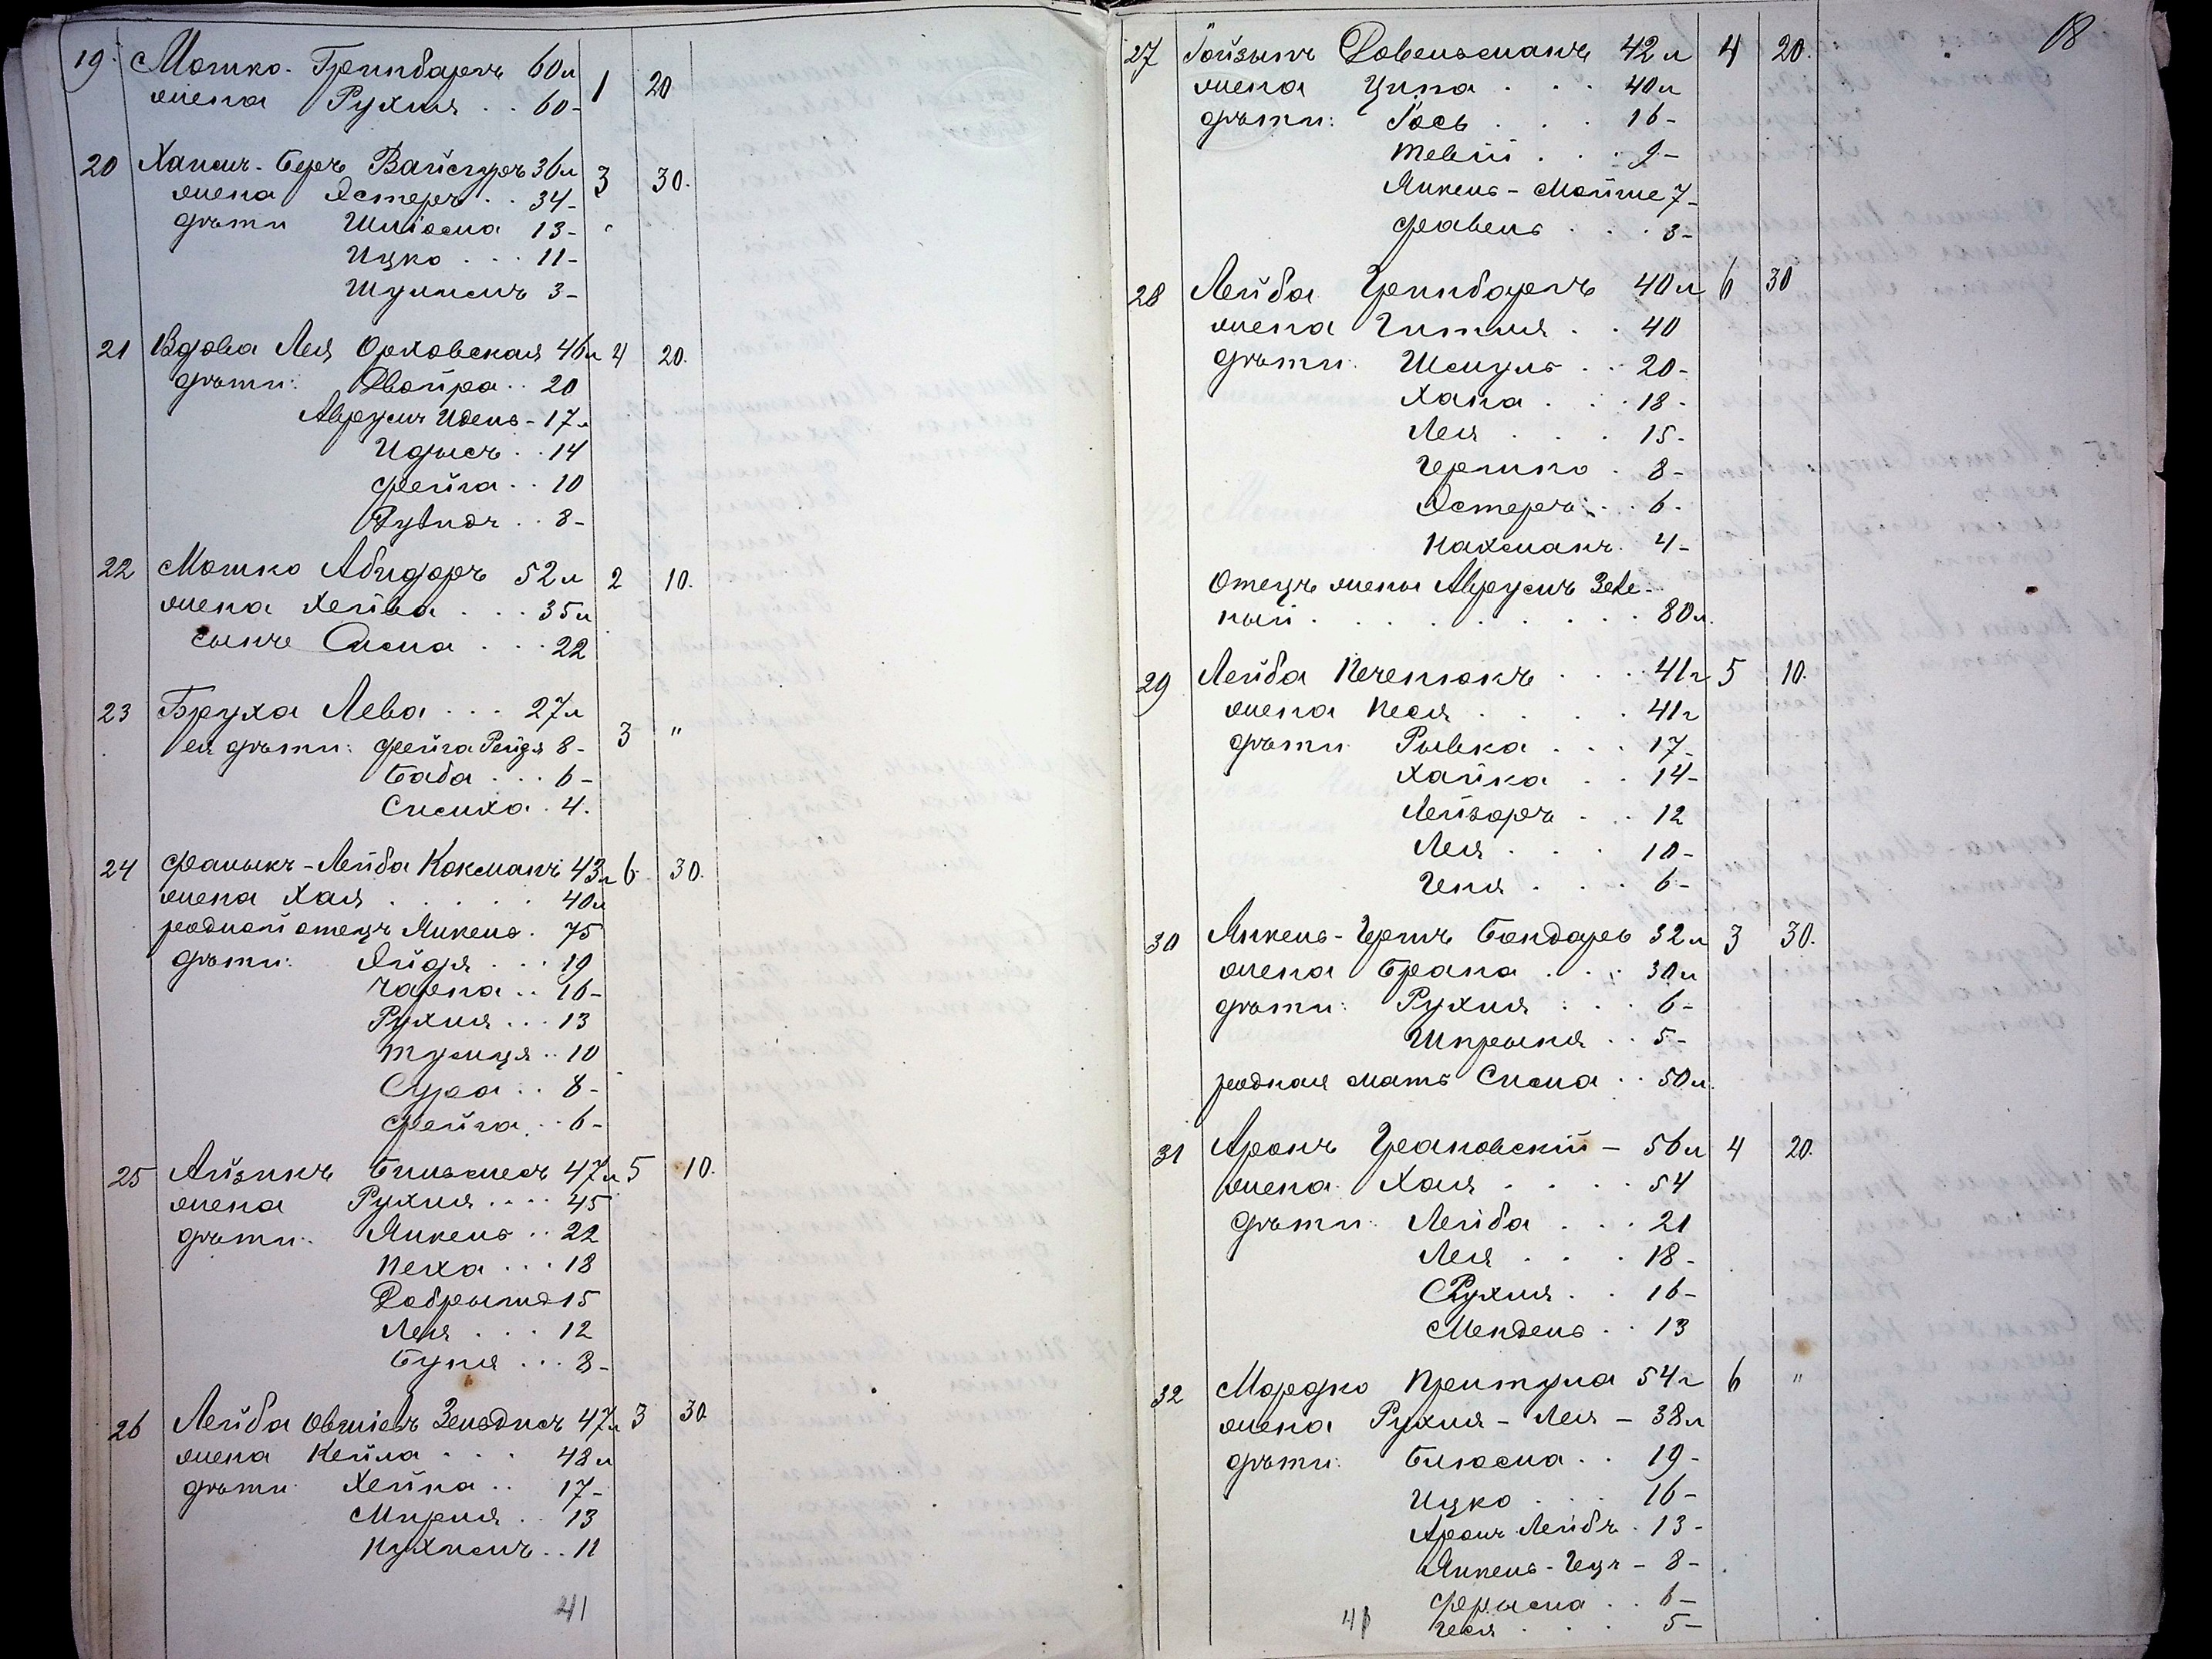 19 Мошко Гринбаргъ 60 л 1 20
жена Рухля . . 60 -
20 Хаимъ-Беръ Вайсгуръ 36 л 3 30.
жена Эстеръ . . 34 -
дѣти Шліома 13 -
Ицко . . . 11 -
Шулимъ 3 -
21 Вдова Лея Орховская 46 л 4 20.
дѣти: Двойра . . 20
Аврумъ Идель - 17 л
Идысъ . . 14
Фейга . . 10
Рувидъ . . 8 -
22 Мошко Абидоръ 52 л 2 10.
жена Хейва . . . 35 л
сынъ Сисма . . . 22
23 Бруха Лева . . . 27 л 3 "
ея дѣти: Фейга Рейзя 8 -
Баба . . . 6 -
Симха . 4.
24 Фалыкъ-Лейба Кокманъ 43 г 6 30.
жена Хая . . . . . 40 л
родной отецъ Янкель . 75
дѣти: Эйдя . . . 19
Чарна . . 16 -
Рухля . . . 13
10
Сура . . 8 -
Фейга . . 6 -
25 Айзикъ Бильмесъ 47 л 5 10.
жена Рухля . . . . 45
дѣти: Янкель . . 22
Песха . . . 18
Добрыша 15
Лея . . . 12
Буня . . . 8 -
26 Лейба Овшіевъ Зельдисъ 47 л 3 30.
жена Кейла . . . 48 л
дѣти: Хейка . . 17 -
Мирля . . 13
Нухимъ . . 11
41
18
27 Іойзыпъ Довельманъ 42 л 4 20.
жена Ципа . . . 40 л
дѣти: Іось . . . 16 -
Тевій . . . 9 -
Янкель - Мойше 7 -
Фавель . . . 3 -
28 Лейба Гринбаргъ 40 л 6 30
жена Гитля . . 40
дѣти: Шмуль . . 20 -
Хана . . . 18 -
Лея . . . 15 -
Гершко . 8 -
Эстеръ . . . 6 -
Нахманъ . 4 -
Отецъ жены Аврумъ Зеле-
ный . . . . . . . . . 80 л.
29 Лейба Печенюкъ . . . 41 г 5 10.
жена Песя . . . . 41 г
дѣти: Рывка . . . 17 -
Хайка . . 14 -
Лейзоръ . . . 12
Лея . . . 10 -
Геня . . . 6 -
30 Янкель-Гершъ Бондарь 32 л 3 30.
жена Брана . . . 30 л
дѣти: Рухля . . . 6 -
Шпрыня . . 5 -
родная мать Сисма . . 50 л.
31 Аронъ Грановскій - 56 л 4 20.
жена Хая . . . . 54
дѣти: Лейба . . . 21
Лея . . . 18 -
Рухля . . 16 -
Мендель . . 13
32 Мордко Притула 54 г 6 "
жена Рухля - Лея - 38 л
дѣти: Блюма . . 19 -
Ицко . . . 16 -
Аронъ Лейбъ . 13 -
Янкель - Гецъ - 8 -
Фрыма . . 6 -
Геся . . . 5 -
41